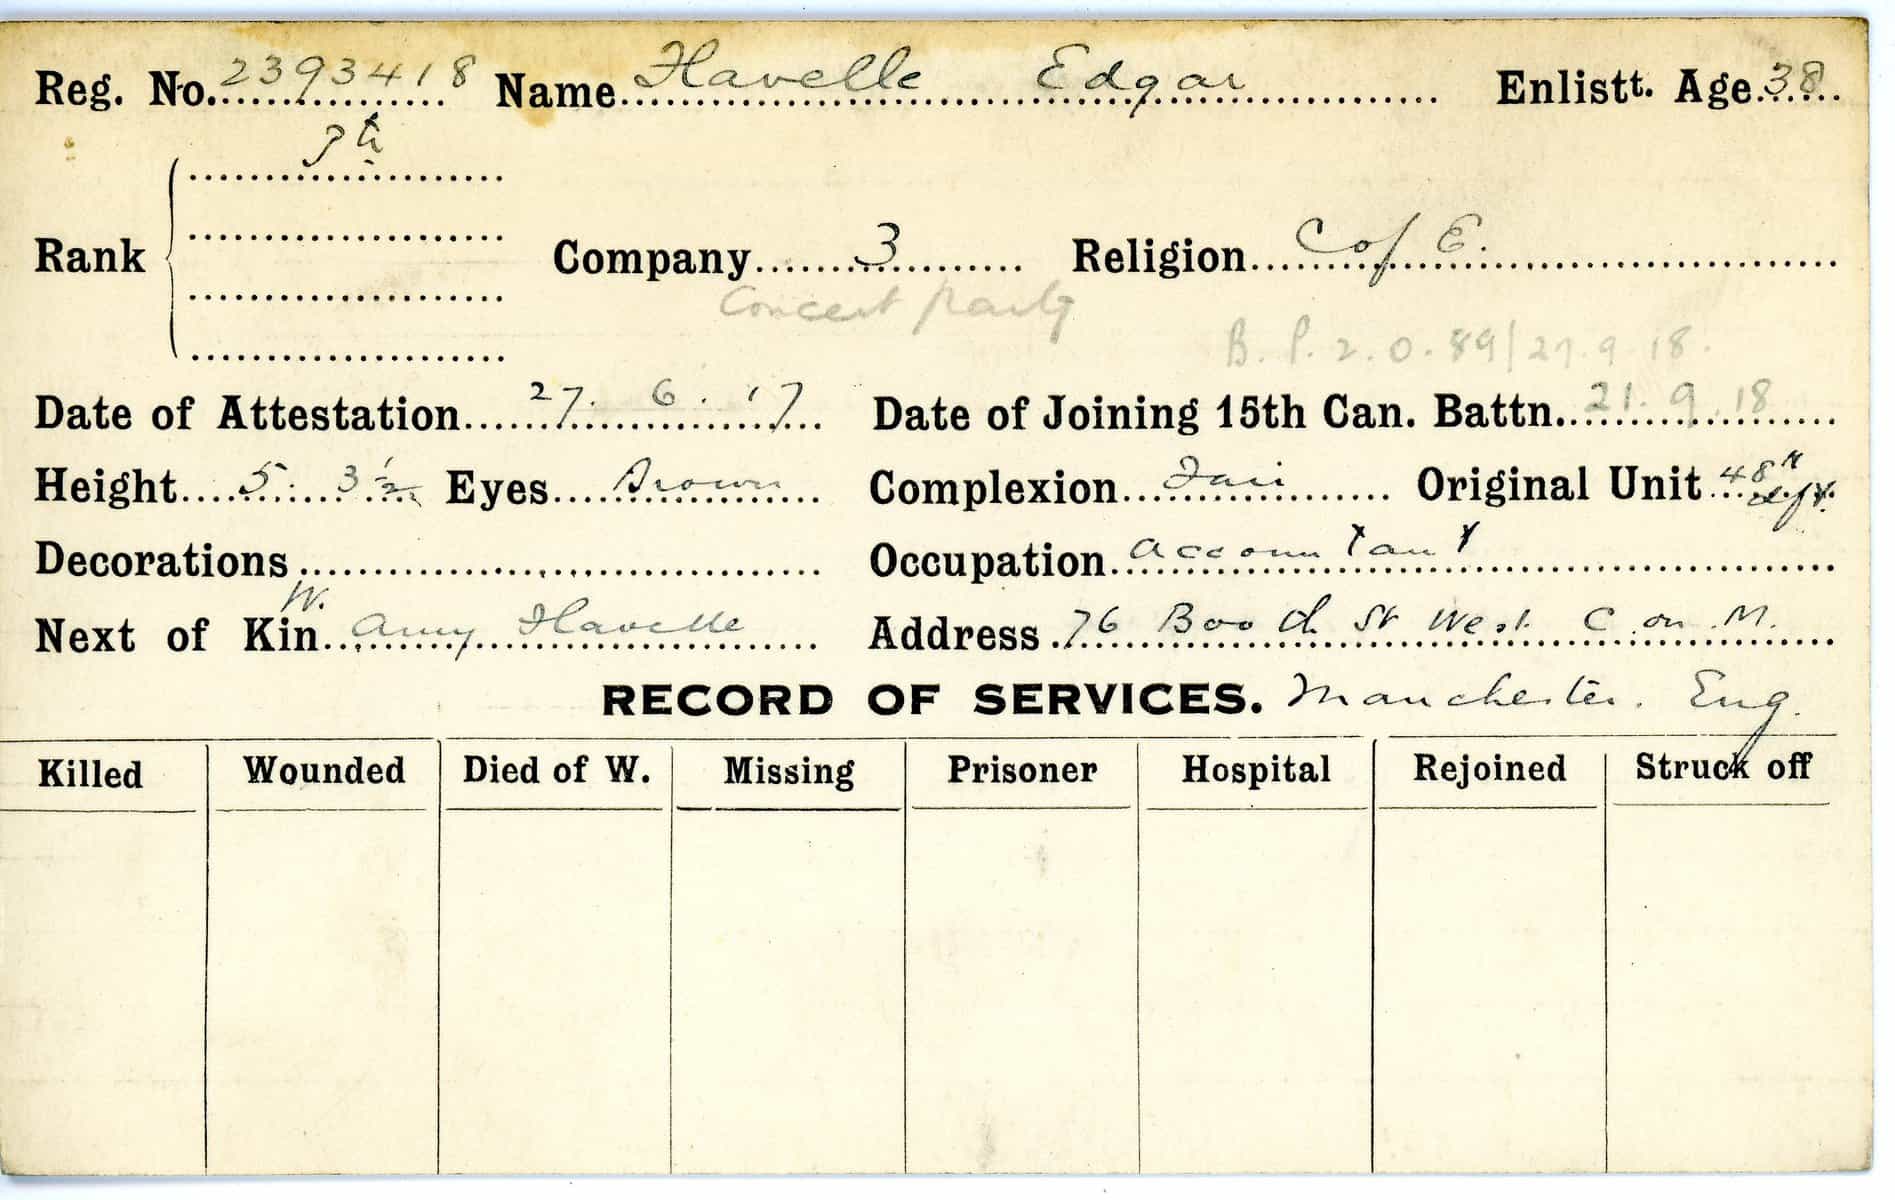 Reg. No. 2393418 Name Flavelle Edgar Enlistt. Age 38
Pte
Rank Company 3 Religion C of E.
Concert party
B. P. 2. 0. 89/27.9.18.
Date of Attestation 27. 6. 17 Date of Joining 15th Can. Battn. 21.9.18
Height 5. 3 1/2 Eyes Brown Complexion Fair Original Unit 48th
Decorations Occupation Accountant
W.
Next of Kin Amy Flavelle Address 76 Booth St West C. on M.
RECORD OF SERVICES. Manchester. Eng.
Killed Wounded Died of W. Missing Prisoner Hospital Rejoined Struck off